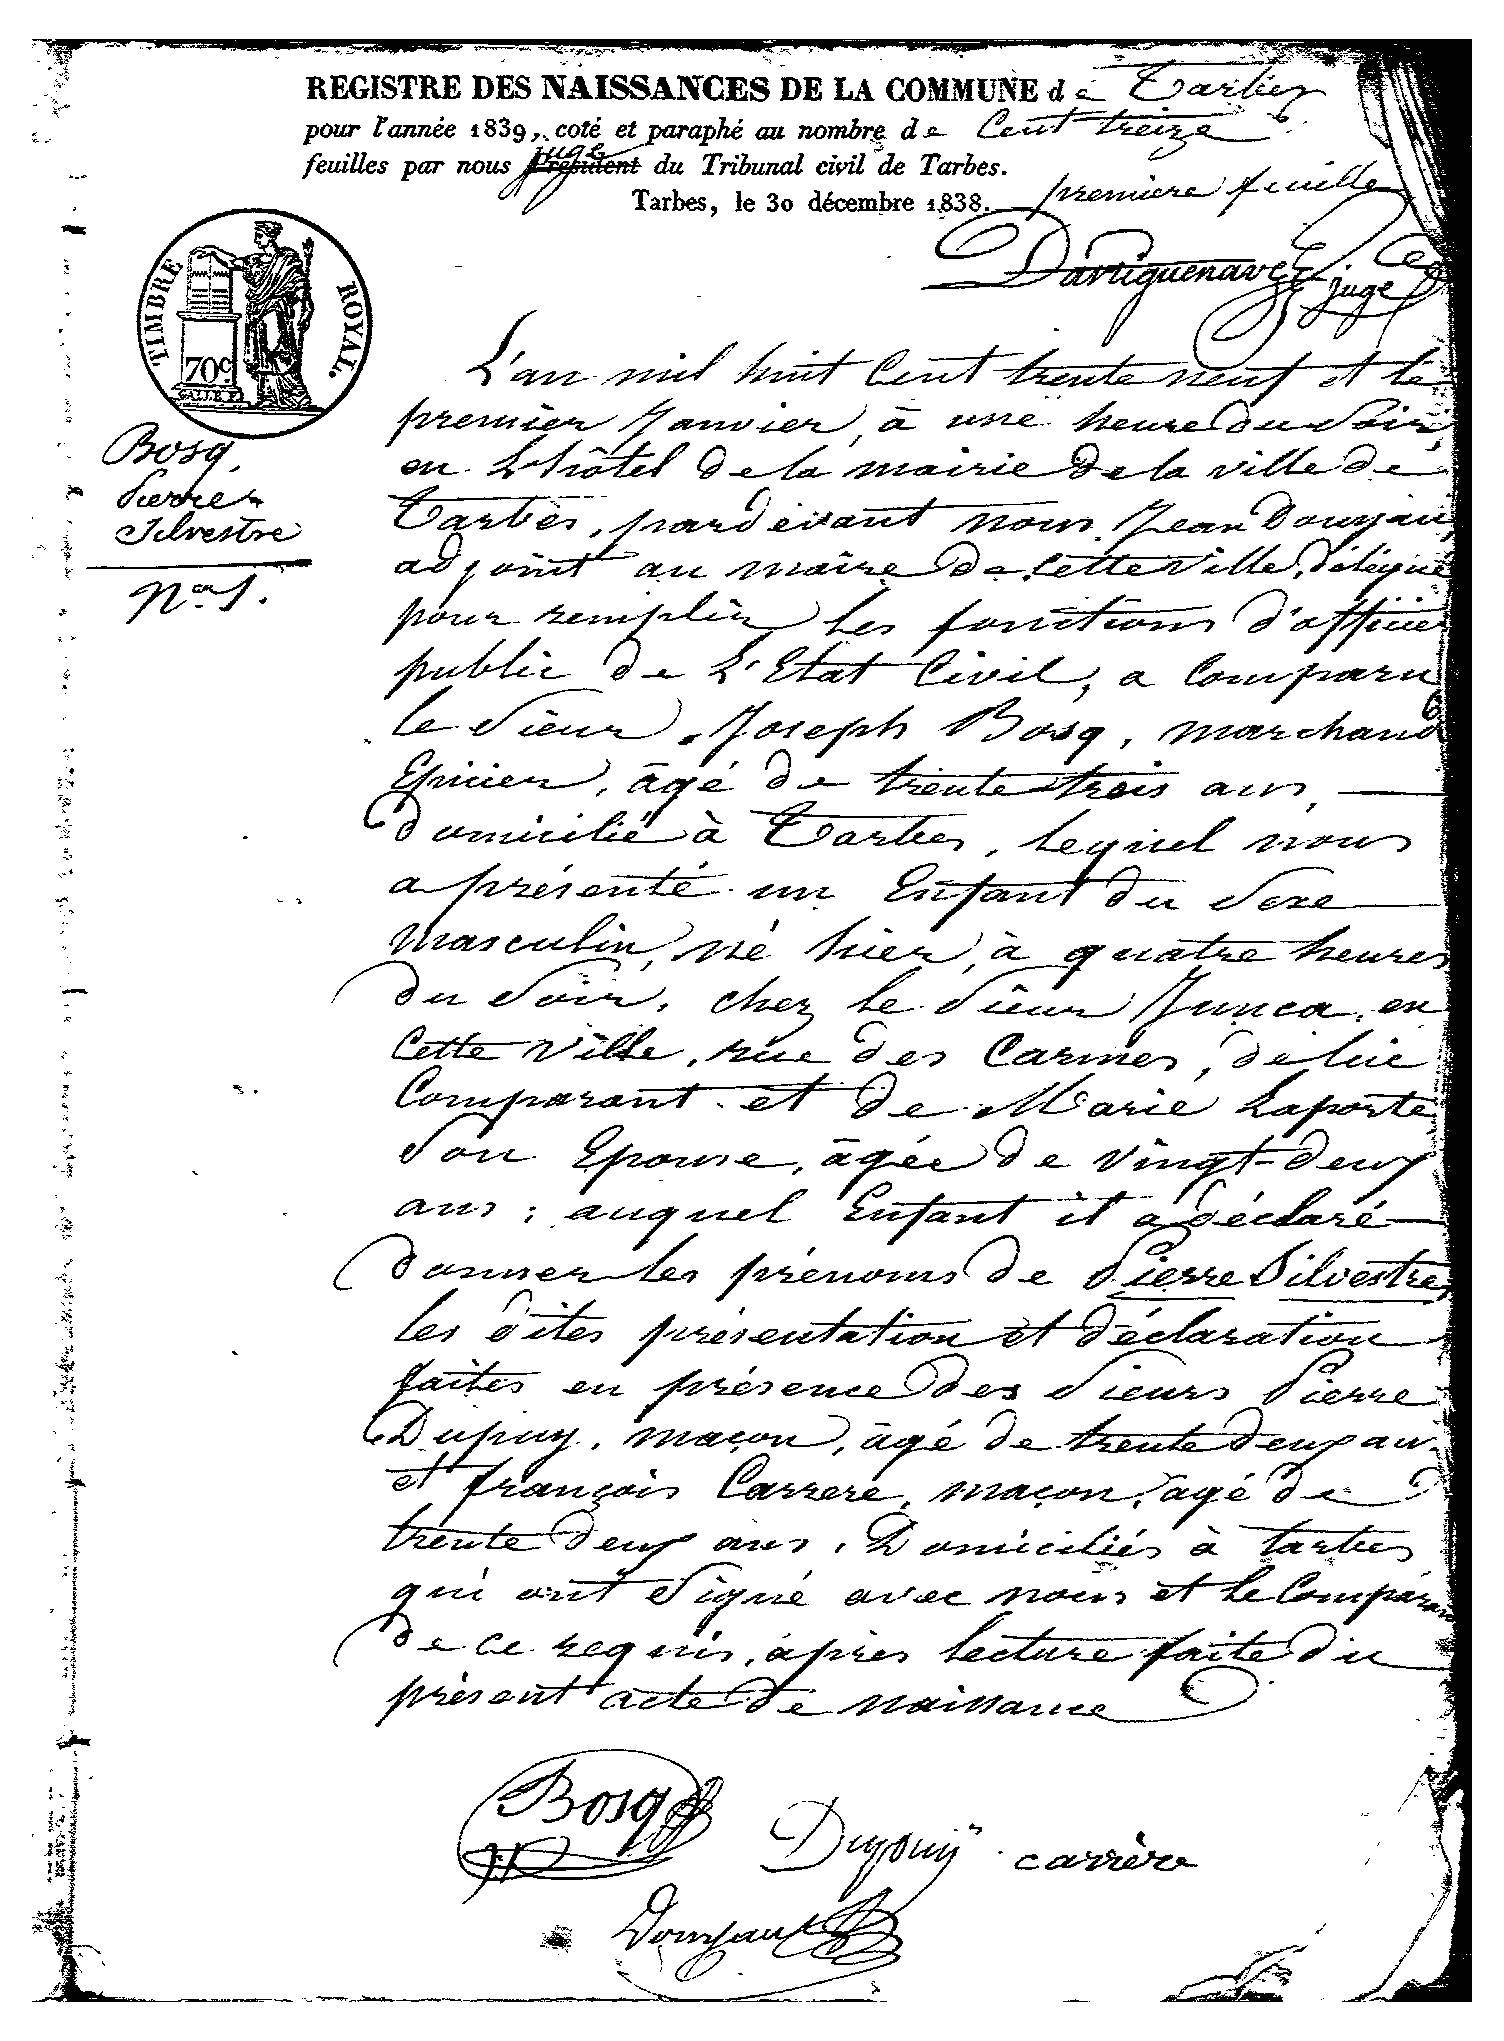 REGISTRE DES NAISSANCES DE LA COMMUNE de Tarbes
pour l'année 1839, coté et paraphé au nombre de Cent treize
feuilles par nous Président juge du Tribunal civil de Tarbes.
Tarbes, le 30 décembre 1838.
première feuille
juge
TIMBRE ROYAL.
70c
Bosq,
Pierre
Silvestre
No. 1.
L'an mil huit Cent trente neuf et le
premier Janvier, à une heure du Soir,
en L'hôtel de la mairie de la ville de
Tarbes, pardevant nous Jean Doujan,
adjoint au maire de Cette Ville, délégué
pour remplir les fonctions d'officier
public de L'Etat Civil, a Comparu
le Sieur Joseph Bosq, marchand
Epicier, âgé de trente trois ans,
domicilié à Tarbes, lequel nous
a présenté un Enfant du Sexe
masculin, né hier, à quatre heures
du Soir, chez le Sieur Junca, en
Cette Ville, rue des Carmes, de lui
Comparant et de Marie Laporte
Son Epouse, âgée de Vingt-deux
ans; auquel Enfant il a déclaré
donner les prénoms de Pierre Silvestre,
les dites présentation et déclaration
faites en présence des Sieurs Pierre
Dupuy, maçon, âgé de trente deux ans
et françois Carrere, maçon, âgé de
trente deux ans, Domiciliés à tarbes
qui ont Signé avec nous et le Comparant
de ce requis, après lecture faite du
présent acte de naissance
Bosq
Dupouÿ carrère
Doujan